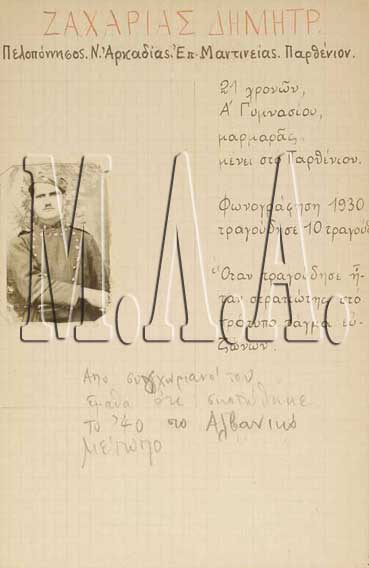 ΖΑΧΑΡΙΑΣ ΔΗΜΗΤΡ.
Πελοπόννησος. Ν. Ἀρκαδίας. Ἐπ. Μαντινείας. Παρθένιον.
21 χρονῶν,
Α΄ Γυμνασίου,
μαρμαρᾶς
μένει στο Παρθένιον.
Φωνογράφηση 1930
τραγούδησε 10 τραγού
Ὅταν τραγούδησε ἦ-
ταν στρατιώτης στο
πρότυπο τάγμα εὐ-
ζώνων.
Απο συγχωριανό του
έμαθα ότι σκοτώθηκε
το '40 στο Αλβανικό
Μέτωπο
Μο.Λ.Α.